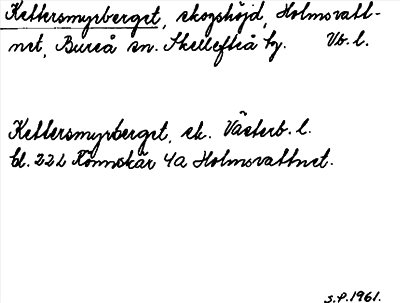 Kettersmyrberget, skogshöjd, Holmsvatt-
net, Bureå sn. Skellefteå tg. Vb. l.
Kettersmyrberget, ek. Västerb. l.
bl. 22L Rönnskär 4a Holmsvattnet.
S.P. 1961.